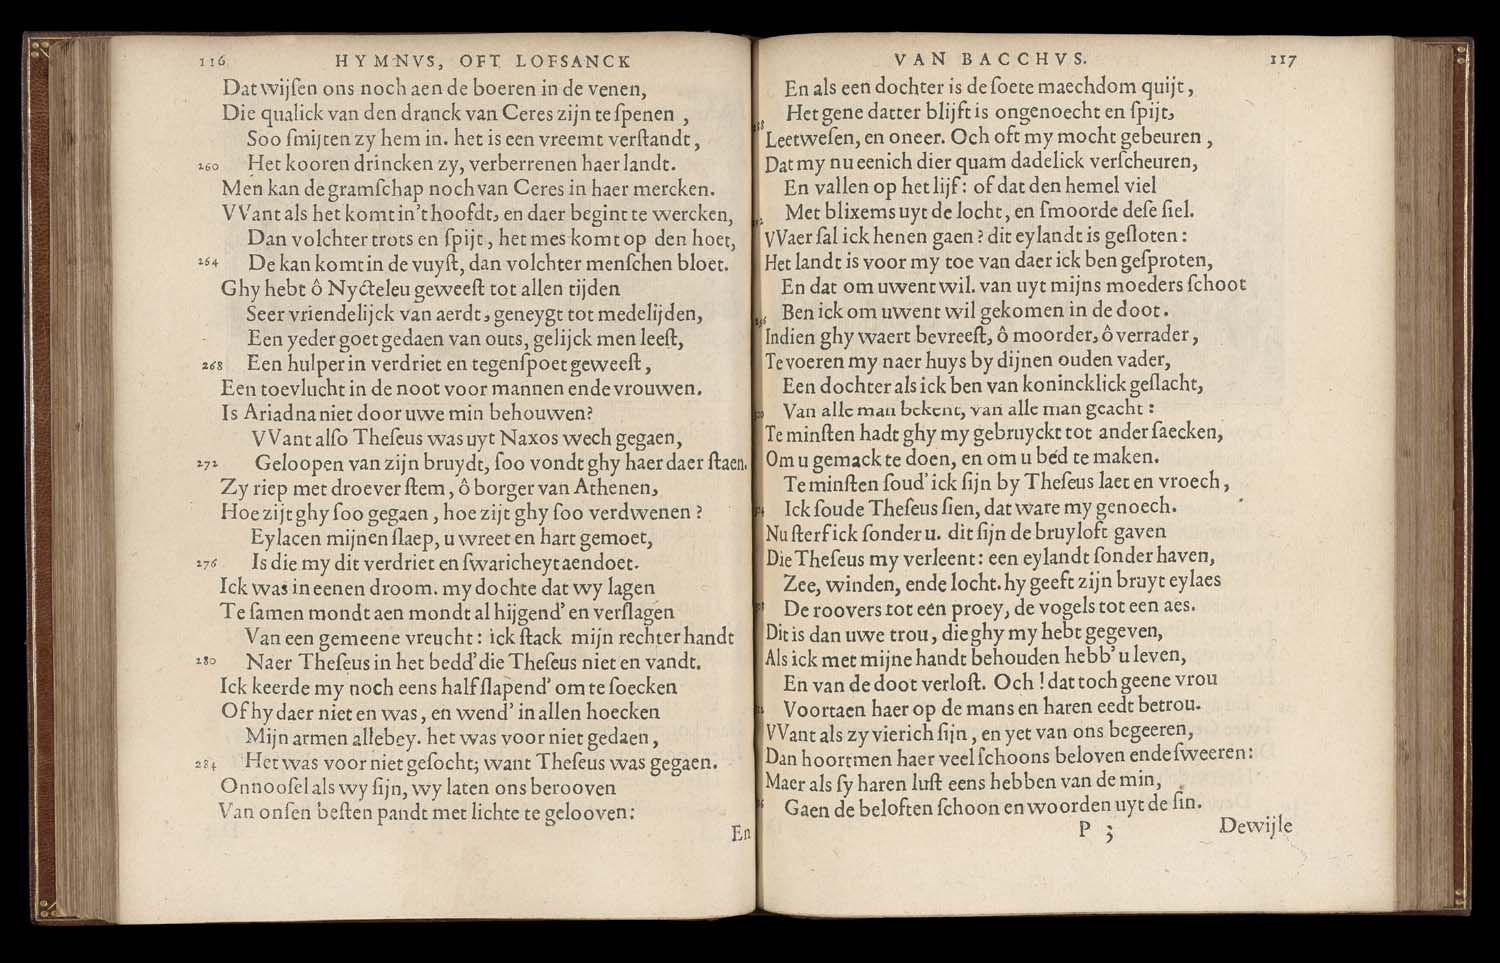 116 HYMNVS, OFT LOFSANCK
Dat wijſen ons noch aen de boeren in de venen,
Die qualick van den dranck van Ceres zijn te ſpenen ,
Soo ſmijten zy hem in. het is een vreemt verſtandt ,
260 Het kooren drincken zy, verberrenen haer landt.
Men kan de gramſchap noch van Ceres in haer mercken.
VVant als het komt in't hoofdt, en daer begint te wercken,
Dan volchter trots en ſpijt, het mes komt op den hoet,
264 De kan komt in de vuyſt, dan volchter menſchen bloet.
Ghy hebt ô Nycteleu geweeſt tot allen tijden
Seer vriendelijck van aerdt, geneygt tot medelijden,
Een yeder goet gedaen van outs, gelijck men leeſt,
268 Een hulper in verdriet en tegenſpoet geweeſt ,
Een toevlucht in de noot voor mannen ende vrouwen.
Is Ariadna niet door uwe min behouwen?
VVant alſo Theſeus was uyt Naxos wech gegaen,
272 Geloopen van zijn bruydt, ſoo vondt ghy haer daer ſtaen.
Zy riep met droever ſtem, ô borger van Athenen,
Hoe zijt ghy ſoo gegaen , hoe zijt ghy ſoo verdwenen ?
Eylacen mijnen ſlaep, u wreet en hart gemoet,
276 Is die my dit verdriet en ſwaricheyt aendoet.
Ick was in eenen droom. my dochte dat wy lagen
Te ſamen mondt aen mondt al hijgend' en verſlagen
Van een gemeene vreucht : ick ſtack mijn rechter handt
280 Naer Theſeus in het bedd' die Theſeus niet en vandt.
Ick keerde my noch eens half ſlapend' om te ſoecken
Of hy daer niet en was , en wend' in allen hoecken
Mijn armen allebey. het was voor niet gedaen ,
284 Het was voor niet geſocht; want Theſeus was gegaen.
Onnooſel als wy ſijn, wy laten ons berooven
Van onſen beſten pandt met lichte te gelooven:
En
VAN BACCHVS. 117
En als een dochter is de ſoete maechdom quijt ,
Het gene datter blijft is ongenoecht en ſpijt,
Leetweſen, en oneer. Och oft my mocht gebeuren ,
Dat my nu eenich dier quam dadelick verſcheuren,
En vallen op het lijf : of dat den hemel viel
Met blixems uyt de locht, en ſmoorde deſe ſiel.
VVaer ſal ick henen gaen ? dit eylandt is geſloten :
Het landt is voor my toe van daer ick ben geſproten,
En dat om uwent wil. van uyt mijns moeders ſchoot
Ben ick om uwent wil gekomen in de doot.
Indien ghy waert bevreeſt, ô moorder, ô verrader ,
Te voeren my naer huys by dijnen ouden vader,
Een dochter als ick ben van konincklick geſlacht,
Van alle man bekent, van alle man geacht :
Te minſten hadt ghy my gebruyckt tot ander ſaecken,
Om u gemack te doen, en om u bed te maken.
Te minſten ſoud' ick ſijn by Theſeus laet en vroech ,
Ick ſoude Theſeus ſien, dat ware my genoech.
Nu ſterf ick ſonder u. dit ſijn de bruyloft gaven
Die Theſeus my verleent: een eylandt ſonder haven,
Zee, winden, ende locht. hy geeft zijn bruyt eylaes
De roovers tot een proey, de vogels tot een aes.
Dit is dan uwe trou, die ghy my hebt gegeven,
Als ick met mijne handt behouden hebb' u leven,
En van de doot verloſt. Och ! dat toch geene vrou
Voortaen haer op de mans en haren eedt betrou.
VVant als zy vierich ſijn , en yet van ons begeeren,
Dan hoortmen haer veel ſchoons beloven ende ſweeren:
Maer als ſy haren luſt eens hebben van de min,
Gaen de beloften ſchoon en woorden uyt de ſin.
P 3 Dewijle